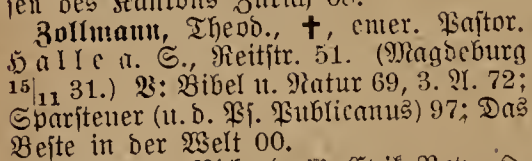 sen des Kantons Zürich 00.
Zollmann, Theod., ✝, emer. Pastor.
Halle a. S., Reitstr. 51. (Magdeburg
15|11 31.) V: Bibel u. Natur 69, 3. A. 72;
Sparsteuer (u. d. Ps. Publicanus) 97; Das
Beste in der Welt 00.